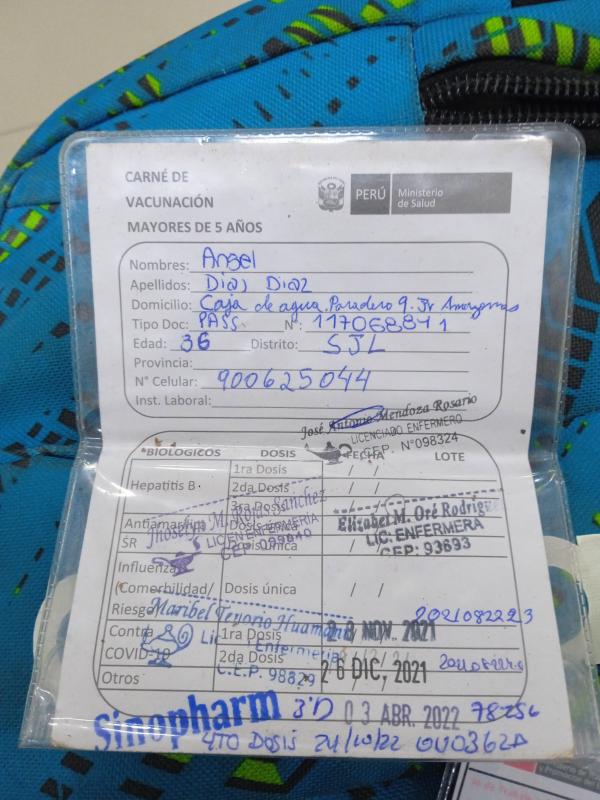 CARNÉ DE
VACUNACIÓN
MAYORES DE 5 AÑOS
PERÚ Ministerio de Salud
Nombres: Angel
Apellidos: Diaz Diaz
Domicilio: Caja de agua. Paradero 9. Jr Amazonas
Tipo Doc: PASS N°: 117068841
Edad: 36 Distrito: SJL
Provincia:
N° Celular: 900625044
Inst. Laboral:
José Antonio Mendoza Rosario
LICENCIADO ENFERMERO
CEP. N°098324
BIOLOGICOS DOSIS FECHA LOTE
Hepatitis B 1ra Dosis / /
2da Dosis / /
3ra Dosis
Sanchez
LIC. EN ENFERMERIA
Elizabel M. Oré Rodrig
LIC. ENFERMERA
CEP: 93693
SR
Influenza
Comorbilidad/ Dosis única / /
Riesgo
Maribel Tenorio Huamaní
Lic Enfermería
C.E.P. 98829
Contra 1ra Dosis 28 NOV. 2021 2021082223
COVID-19 2da Dosis 26 DIC. 2021
Otros
Sinopharm 3°D 03 ABR. 2022 78256
4TO DOSIS 24/10/22 OUO362A